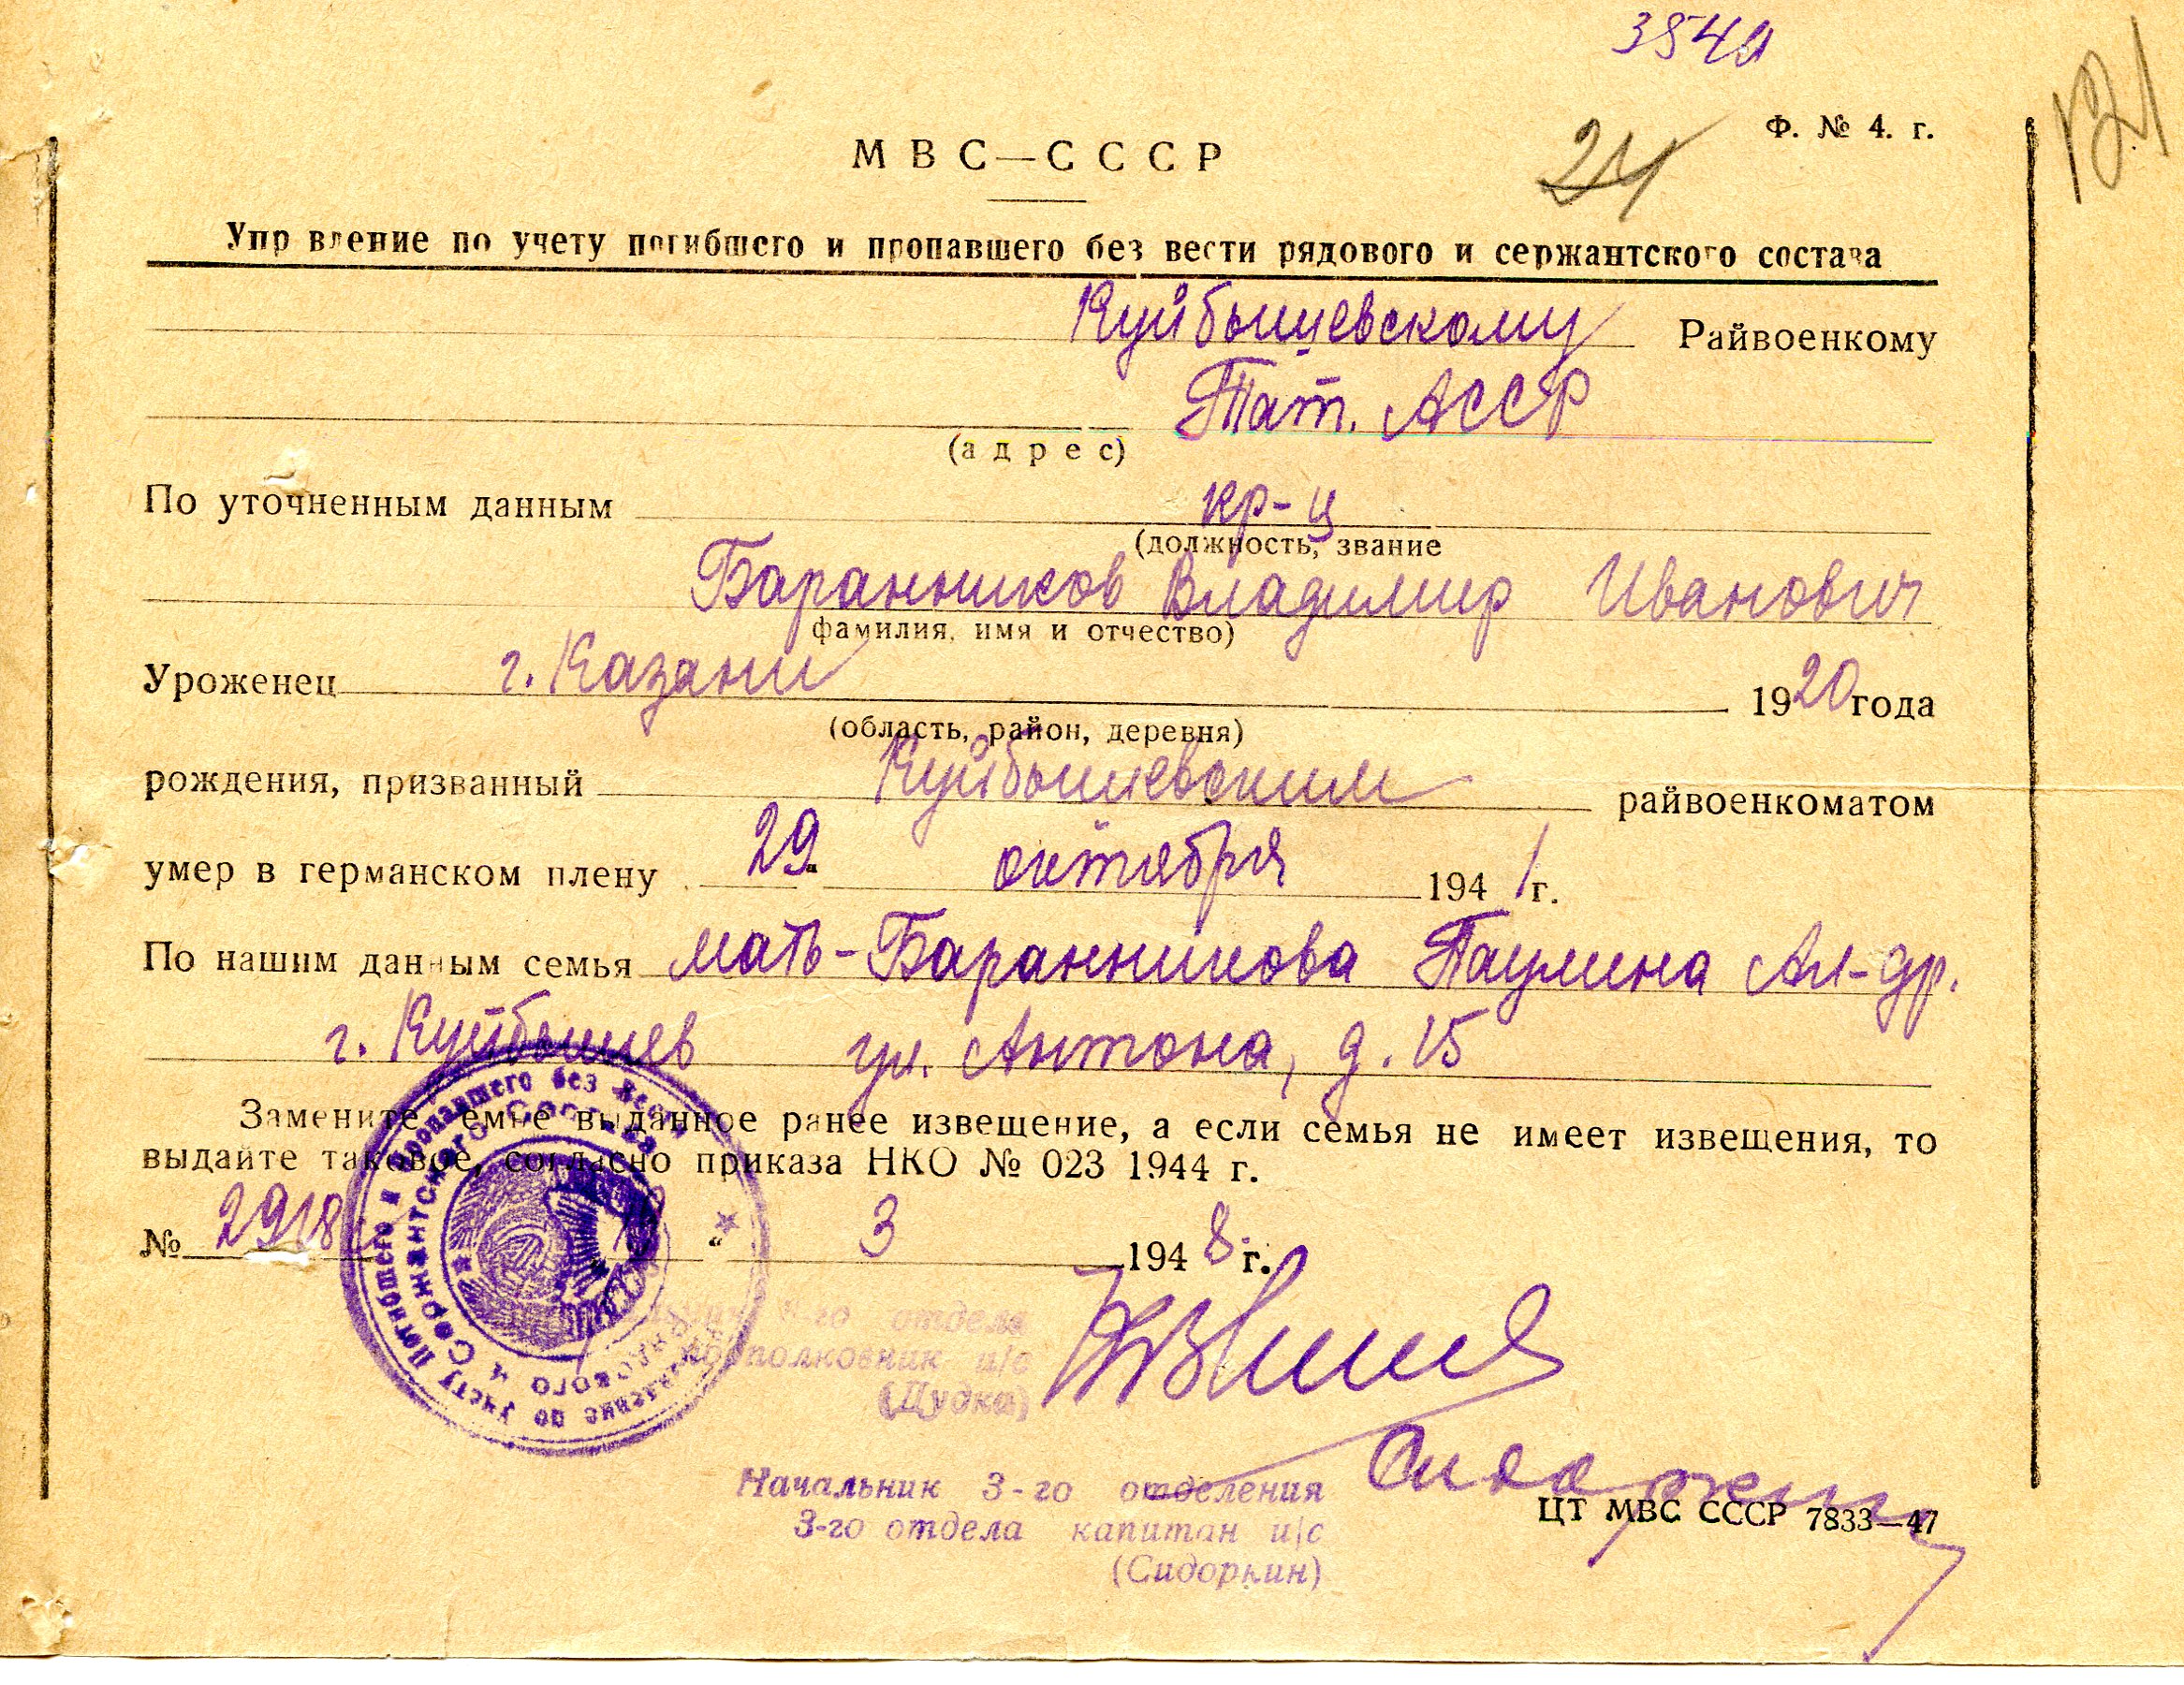 354
121
Ф. № 4. г.
24
МВС—СССР
Упр вление по учету погибшего и пропавшего без вести рядового и сержантского состава
Куйбышевскому Райвоенкому
Тат. АССР
(адрес)
По уточненным данным кр-ц
(должность, звание
Баранников Владимир Иванович
фамилия, имя и отчество)
Уроженец г. Казани 1920 года
(область, район, деревня)
рождения, призванный Куйбышевским райвоенкоматом
умер в германском плену 29 октября 1941 г.
По нашим данным семья мать-Баранникова Паулина Ал-др.
г. Куйбышев ул. Антона, д. 15
Замените емье выданное ранее извещение, а если семья не имеет извещения, то
выдайте таковое, согласно приказа НКО № 023 1944 г.
№ 2918 “ 3 1948 г.
Управление по учету Погибшего и Пропавшего без Вести
Рядового и Сержантского Состава
3-го отдела
подполковник и/с
(Дудка)
Начальник 3-го отделения
3-го отдела капитан и/с
(Сидоркин)
Сидоркин
ЦТ МВС СССР 7833—47